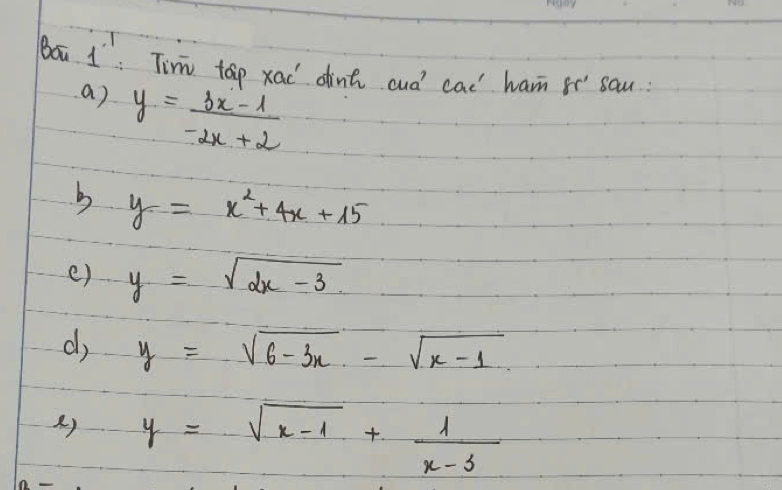 Ngày No.
Bài 1: Tìm tập xác định của các hàm số sau:
a) y = \frac{3x - 1}{-2x + 2}
b) y = x² + 4x + 15
c) y = √(2x - 3)
d) y = √(6 - 3x) - √(x - 1)
e) y = √(x - 1) + \frac{1}{x - 3}